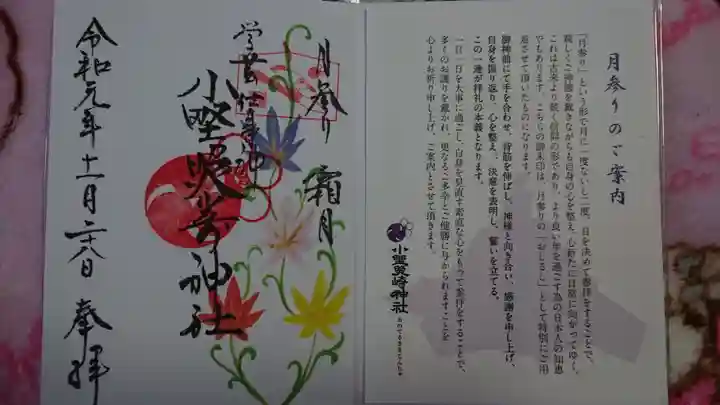 月参りのご案内
「月参り」という形で月に一度ないし二度、日を決めて参拝をすることで、
親しくご神徳を戴きながらも自身の心を整え、心新たに日常に向かってゆく。
これは古来より続く信仰の形であり、より良い年を過ごす為の日本人の知恵
でもあります。こちらの御朱印は、月参りの「おしるし」として特別にご用
意させて頂いたものになります。
御神前にて手を合わせ、背筋を伸ばし、神様と向き合い、感謝を申し上げ、
自身を振り返り、心を整え、決意を表明し、誓いを立てる。
この一連が拝礼の本義となります。
一日一日を大事に過ごし、自身を見直す素直な心をもって参拝をすることで、
多くのお護りを戴かれ、更なるご多幸とご健勝に与かられますことを
心よりお祈り申し上げ、ご案内とさせて頂きます。
小野照崎神社
おのてるさきじんじゃ
月参り 霜月
学芸仕事
小野照崎神社
令和元年十一月二十八日 奉拝